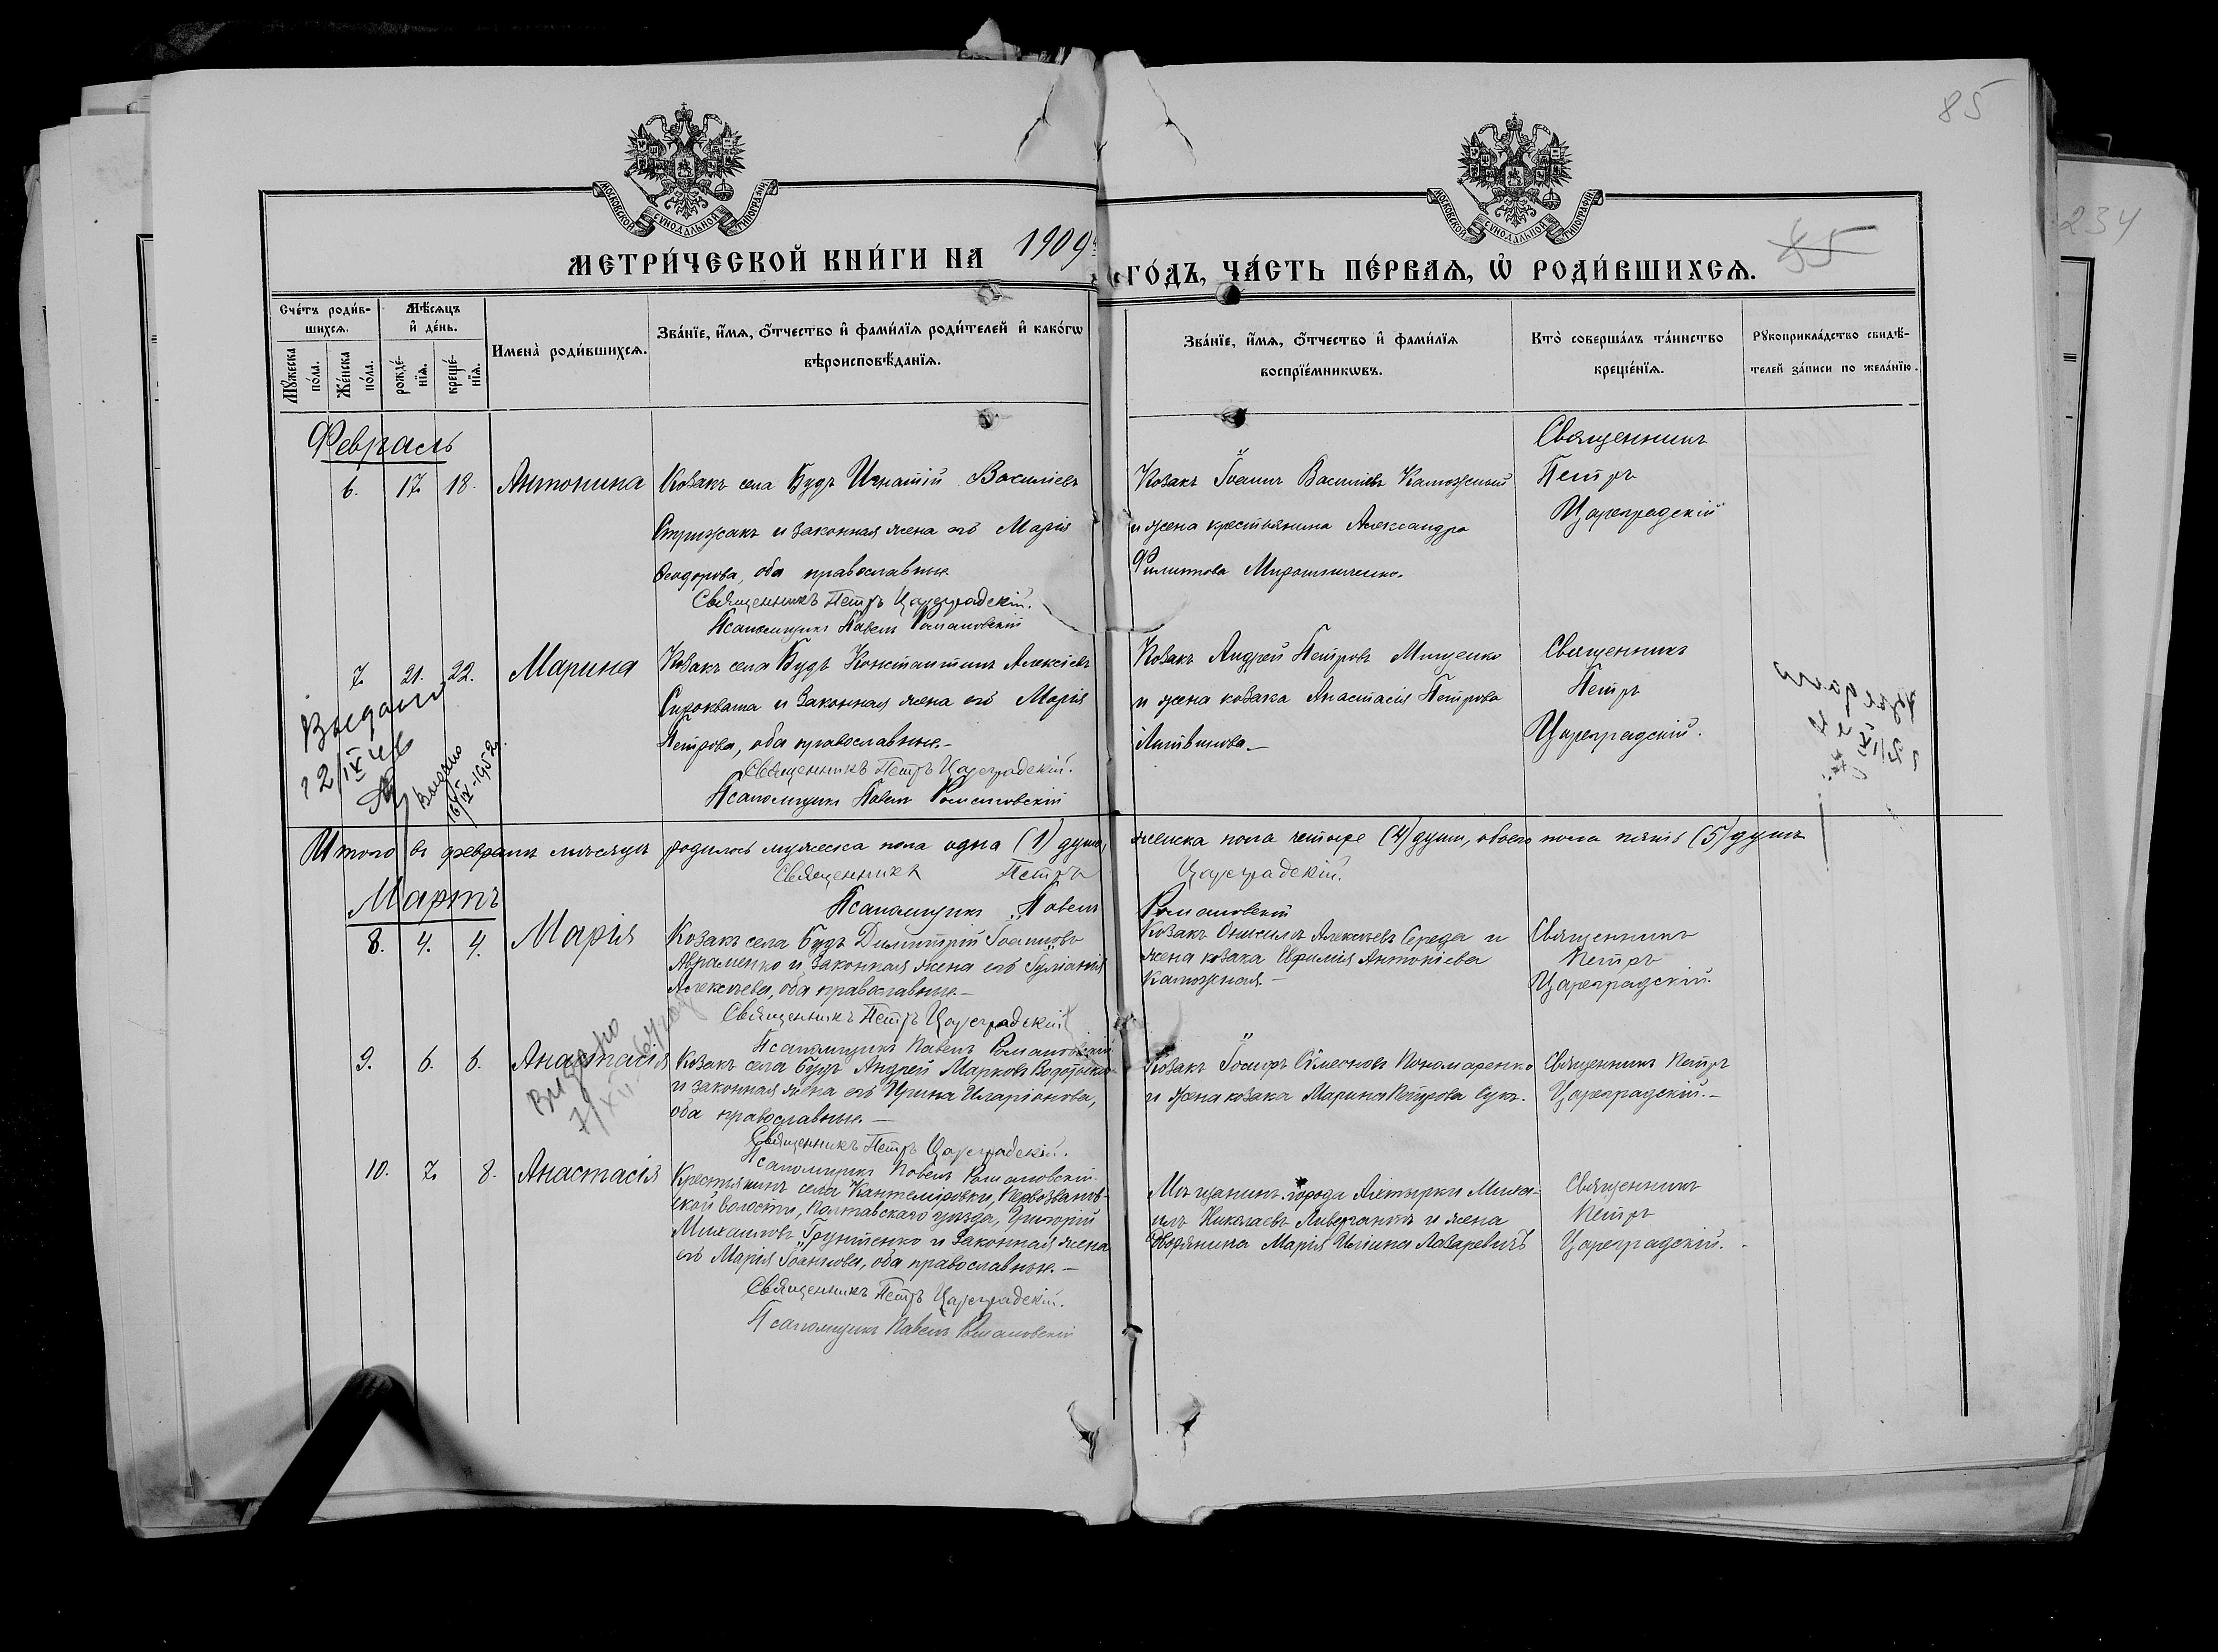 85
234
МОСКОВСКОЙ СѴНОДАЛЬНОЙ ТИПОГРАФІИ
МОСКОВСКОЙ СѴНОДАЛЬНОЙ ТИПОГРАФІИ
МЕТРИ́ЧЕСКОЙ КНИ́ГИ НА 1909
ГО́ДЪ, ЧА́СТЬ ПЕ́РВАѦ, Ѡ РОДИ́ВШИХСѦ.
85
Сче́тъ роди́вшихсѧ.
Мꙋ́жеска по́ла.
Же́нска по́ла.
Мѣ́сѧцъ и҆ де́нь.
рожде́нїѧ.
креще́нїѧ.
Имена̀ роди́вшихсѧ.
Зва́нїе, и҆́мѧ, ѻ҆́тчество и҆ фами́лїѧ роди́телей и҆ како́гѡ
вѣроисповѣ́данїѧ.
Зва́нїе, и҆́мѧ, ѻ҆́тчество и҆ фами́лїѧ
воспрїе́мникѡвъ.
Кто̀ соверша́лъ та́инство
креще́нїѧ.
Рꙋкоприкла́дство свидѣ́-
телей за́писи по жела́нїю.
Февраль
6. 17. 18. Антонина
Козакъ села Будъ Игнатій Василіевъ
Стрижакъ и законная жена его Марія
Ѳеодорова, оба православные
Священникъ Петръ Цареградскій.
Псаломщикъ Павелъ Романовскій
Козакъ Іоаннъ Василіевъ Калюжный
и жена крестьянина Александра
Филиппова Мирошниченко.
Священникъ
Петръ
Цареградскій
7. 21. 22. Марина
Козакъ села Будъ Константинъ Алексіевъ
Сирокваша и законная жена его Марія
Петрова, оба православные.
Священникъ Петръ Цареградскій.
Псаломщикъ Павелъ Романовскій
Козакъ Андрей Петровъ Мищенко
и жена козака Анастасія Петрова
Литвинова.
Священникъ
Петръ
Цареградскій.
Выдано
12/IX 46
Выдано
16/IX-1952г.
Итого въ февралѣ мѣсяцѣ родилось мужеска пола одна (1) душа, женска пола четыре (4) души, обоего пола пять (5) душъ
Священникъ Петръ Цареградскій.
Псаломщикъ Павелъ Романовскій
Мартъ
8. 4. 4. Марія
Козакъ села Будъ Димитрій Іоанновъ
Авраменко и законная жена его Іуліанія
Алексѣева, оба православные.
Священникъ Петръ Цареградскій
Псаломщикъ Павелъ Романовскій
Козакъ Онисимъ Алексѣевъ Середа и
жена козака Евфимія Антоніева
Калюжная.
Священникъ
Петръ
Цареградскій.
9. 6. 6. Анастасія
Козакъ села Будъ Андрей Марковъ
и законная жена его Ирина Иларіонова,
оба православные.
Священникъ Петръ Цареградскій.
Псаломщикъ Павелъ Романовскій
Козакъ Іосифъ Сѵмеоновъ Пономаренко
и жена козака Марина Петрова Сукъ.
Священникъ Петръ
Цареградскій.
Видано
7/XII
10. 7. 8. Анастасія
Крестьянинъ села Кантемировки, Первозванов-
ской волости, Полтавскаго уѣзда, Григорій
Михаиловъ Грунтенко и законная жена
его Марія Іоаннова, оба православные.
Священникъ Петръ Цареградскій.
Псаломщикъ Павелъ Романовскій
Мѣщанинъ города Ахтырки Миха-
илъ Николаевъ и жена
дворянина Марія Иліина Лазаревичъ
Священникъ
Петръ
Цареградскій.